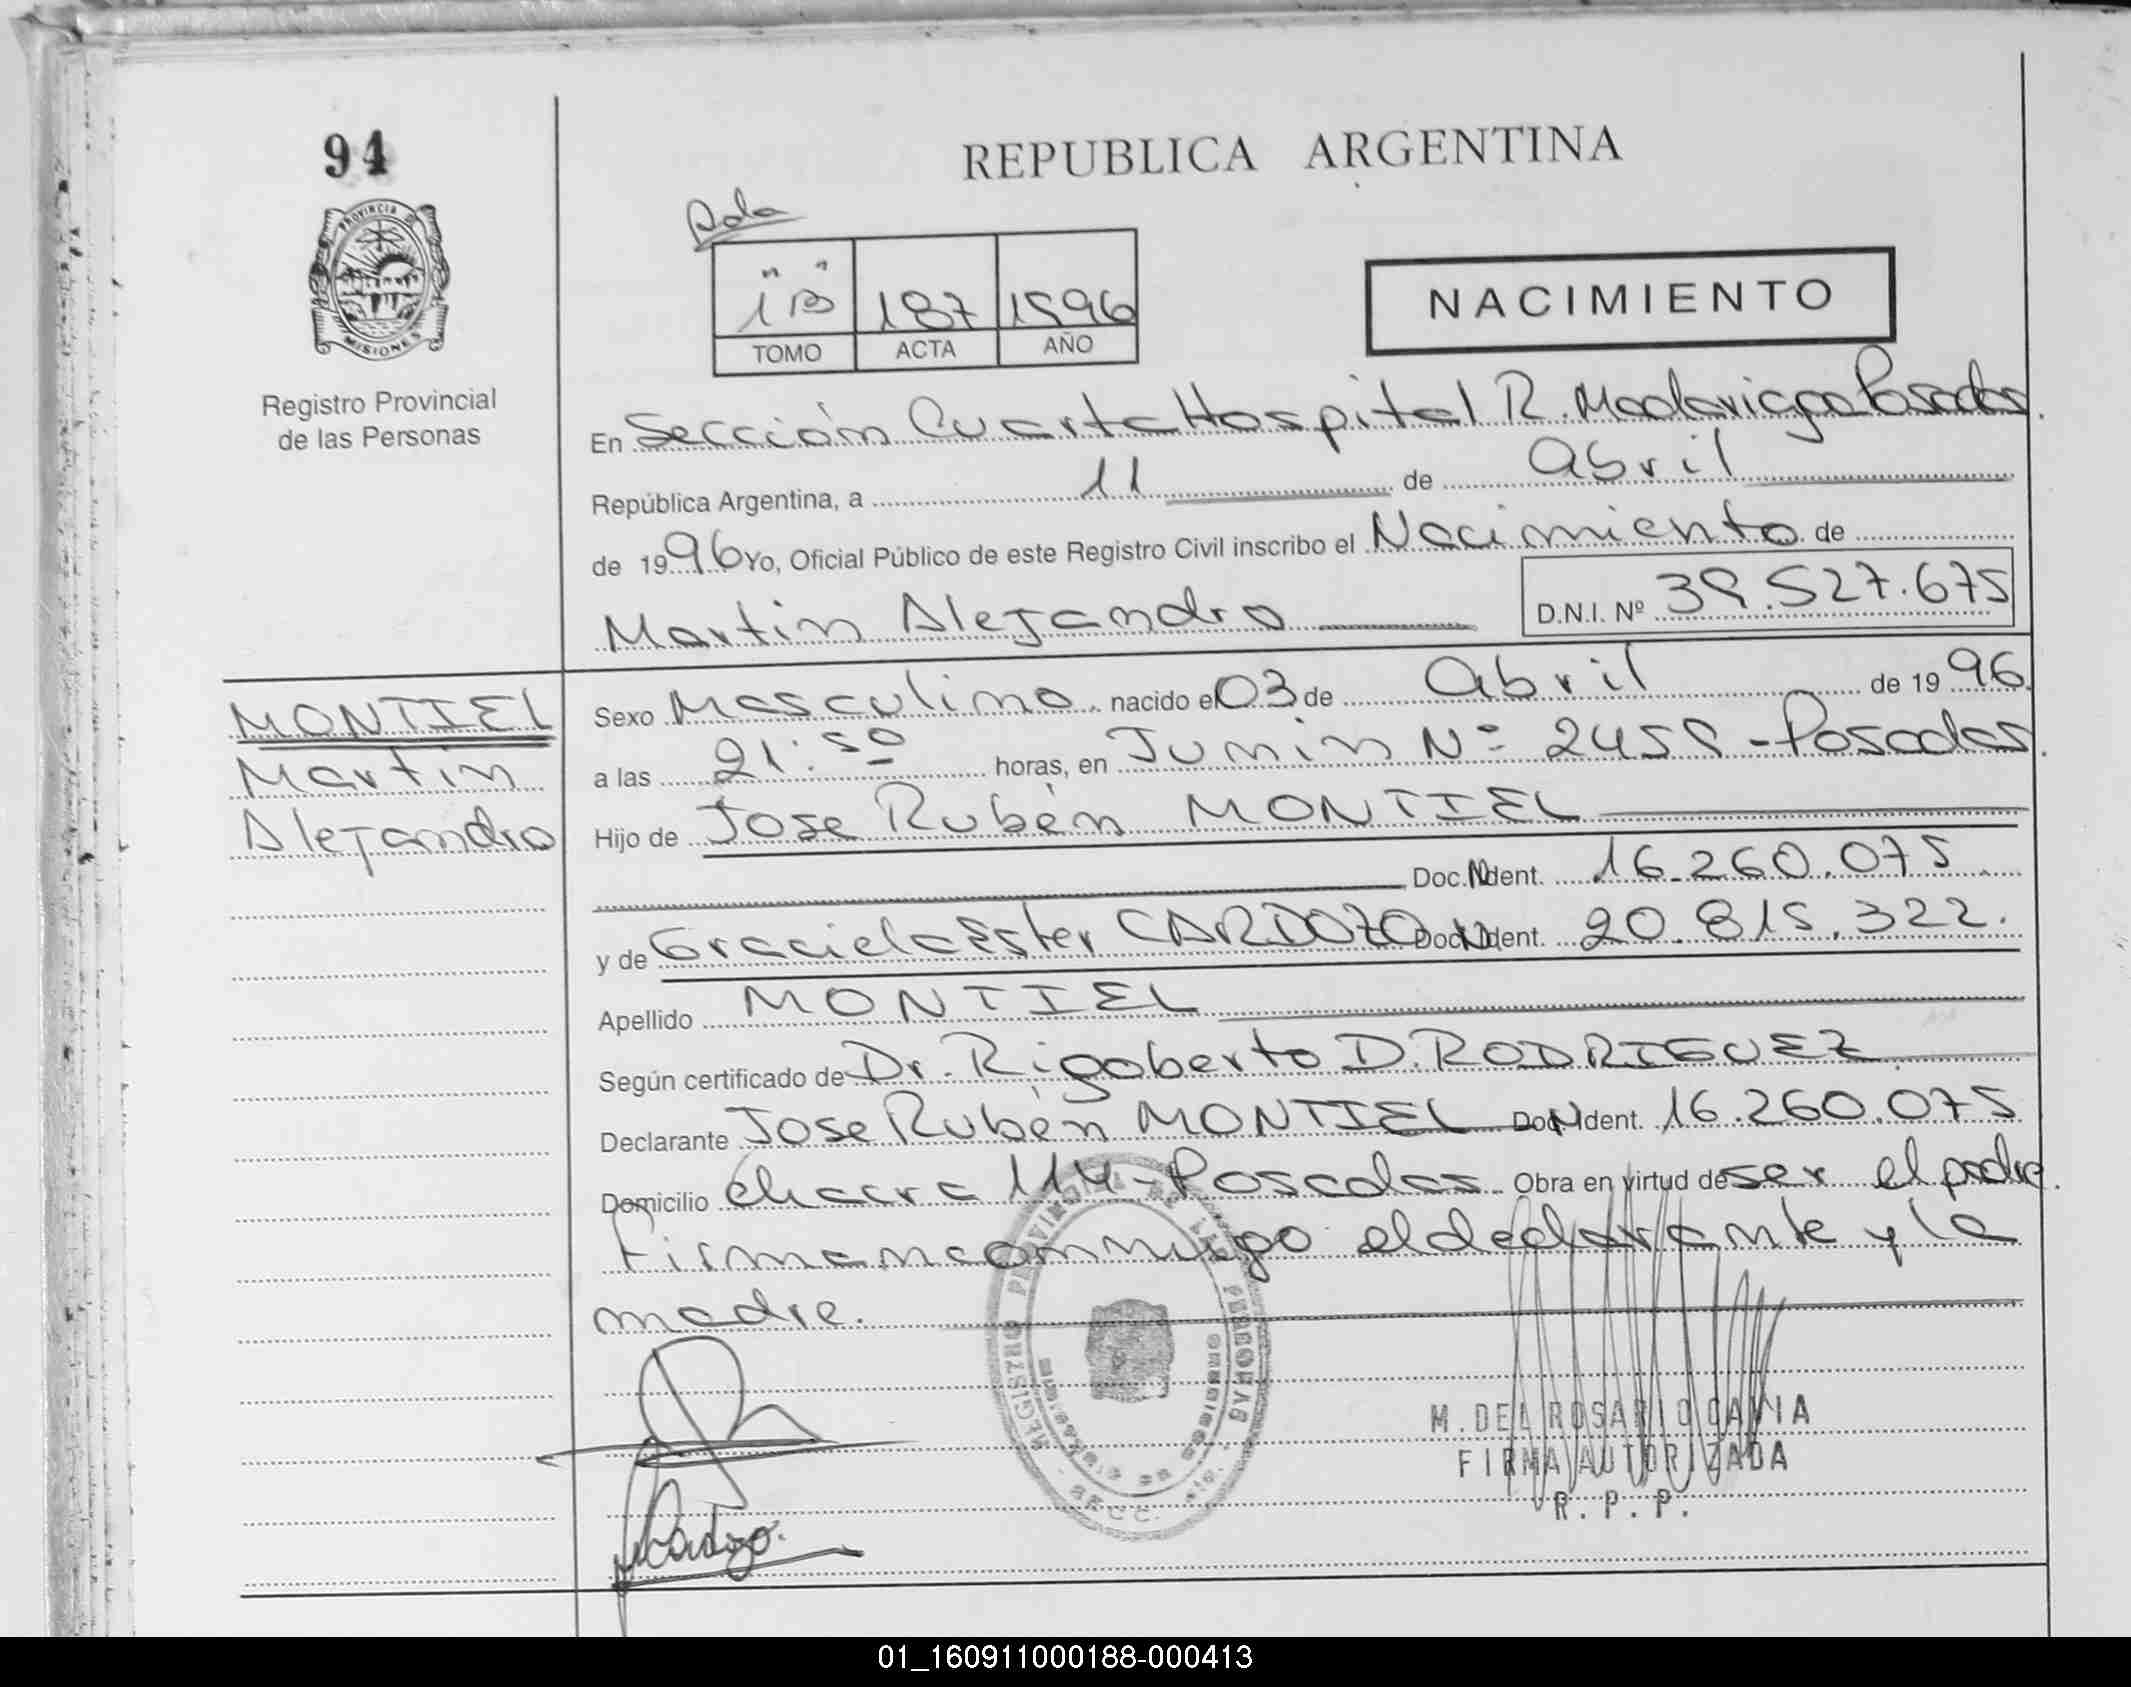 94
REPUBLICA ARGENTINA
PROVINCIA DE
MISIONES
Registro Provincial
de las Personas
"1B" 187 1996
TOMO ACTA AÑO
NACIMIENTO
En Sección Cuarta Hospital R. Madariaga Posadas.
República Argentina, a 11 de abril
de 1996 Yo, Oficial Público de este Registro Civil inscribo el Nacimiento de
Martin Alejandro D.N.I. Nº 39.527.675
MONTIEL
Martin
Alejandro
Sexo Masculino, nacido el 03 de abril de 1996.
a las 21:50 horas, en Junin Nº 2459 - Posadas.
Hijo de Jose Rubén MONTIEL
Doc. N Ident. 16.260.075
y de Graciela Ester CARDOZO Doc. N Ident. 20.815.322.
Apellido MONTIEL
Según certificado de Dr. Rigoberto D. RODRIGUEZ
Declarante Jose Rubén MONTIEL Doc N Ident. 16.260.075
Domicilio chacra 114 - Posadas Obra en virtud de ser el padre.
Firman conmigo el declarante y la
madre.
REGISTRO PROVINCIAL DE LAS PERSONAS
M. DEL ROSARIO GAVIA
FIRMA AUTORIZADA
R. P. P.
Cardozo.
01_160911000188-000413